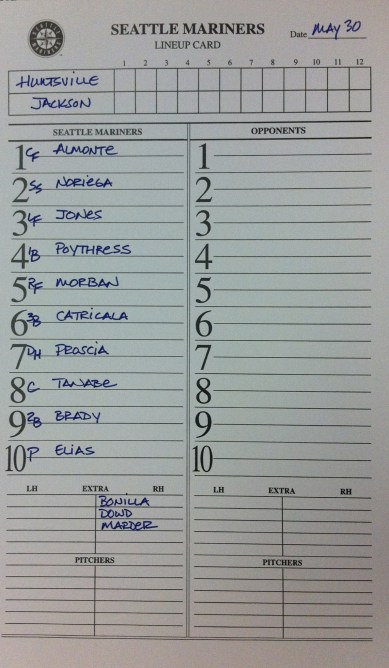 SEATTLE MARINERS
LINEUP CARD
Date MAY 30
1 2 3 4 5 6 7 8 9 10 11 12
HUNTSVILLE
JACKSON
SEATTLE MARINERS OPPONENTS
1 CF ALMONTE 1
2 SS NORIEGA 2
3 LF JONES 3
4 1B POYTHRESS 4
5 RF MORBAN 5
6 3B CATRICALA 6
7 DH PROSCIA 7
8 C TANABE 8
9 2B BRADY 9
10 P ELIAS 10
LH EXTRA RH LH EXTRA RH
BONILLA
DOWD
MARDER
PITCHERS PITCHERS